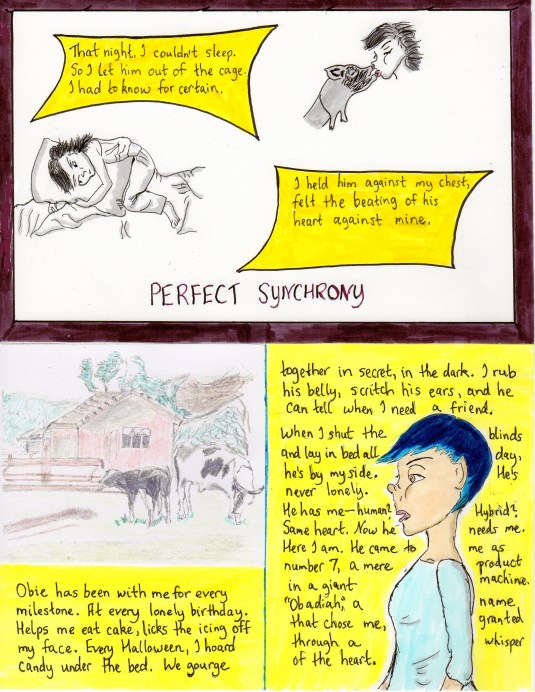 That night, I couldn't sleep.
So I let him out of the cage.
I had to know for certain.
I held him against my chest,
felt the beating of his
heart against mine.
PERFECT SYNCHRONY
Obie has been with me for every
milestone. At every lonely birthday.
Helps me eat cake, licks the icing off
my face. Every Halloween, I hoard
candy under the bed. We gourge
together in secret, in the dark. I rub
his belly, scritch his ears, and he
can tell when I need a friend.
When I shut the blinds
and lay in bed all day,
he's by my side. He's
never lonely.
He has me—human? Hybrid?
Same heart. Now he needs me.
Here I am. He came to me as
number 7, a mere product
in a giant machine.
"Obadiah," a name
that chose me, granted
through a whisper
of the heart.